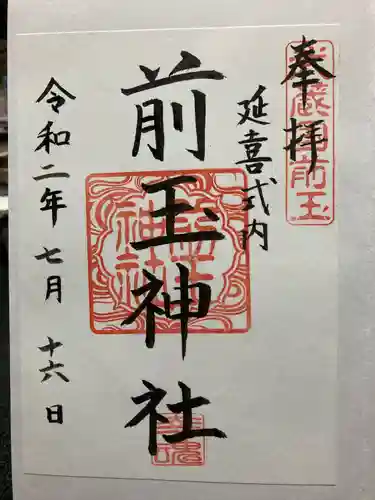 奉拝
延喜式内
前玉神社
令和二年七月十六日
武蔵国前玉
前玉神社
幸魂